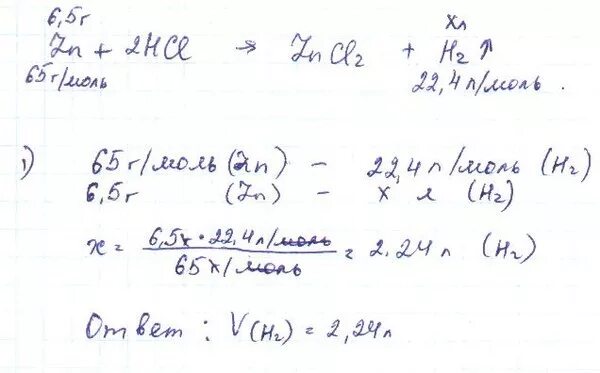 6,5г хл
Zn + 2HCl → ZnCl2 + H2↑
65г/моль 22,4л/моль.
1) 65г/моль (Zn) – 22,4л/моль (H2)
6,5г (Zn) – х л (H2)
х = 6,5г · 22,4л/моль / 65г/моль = 2,24л (H2)
Ответ: V(H2) = 2,24л